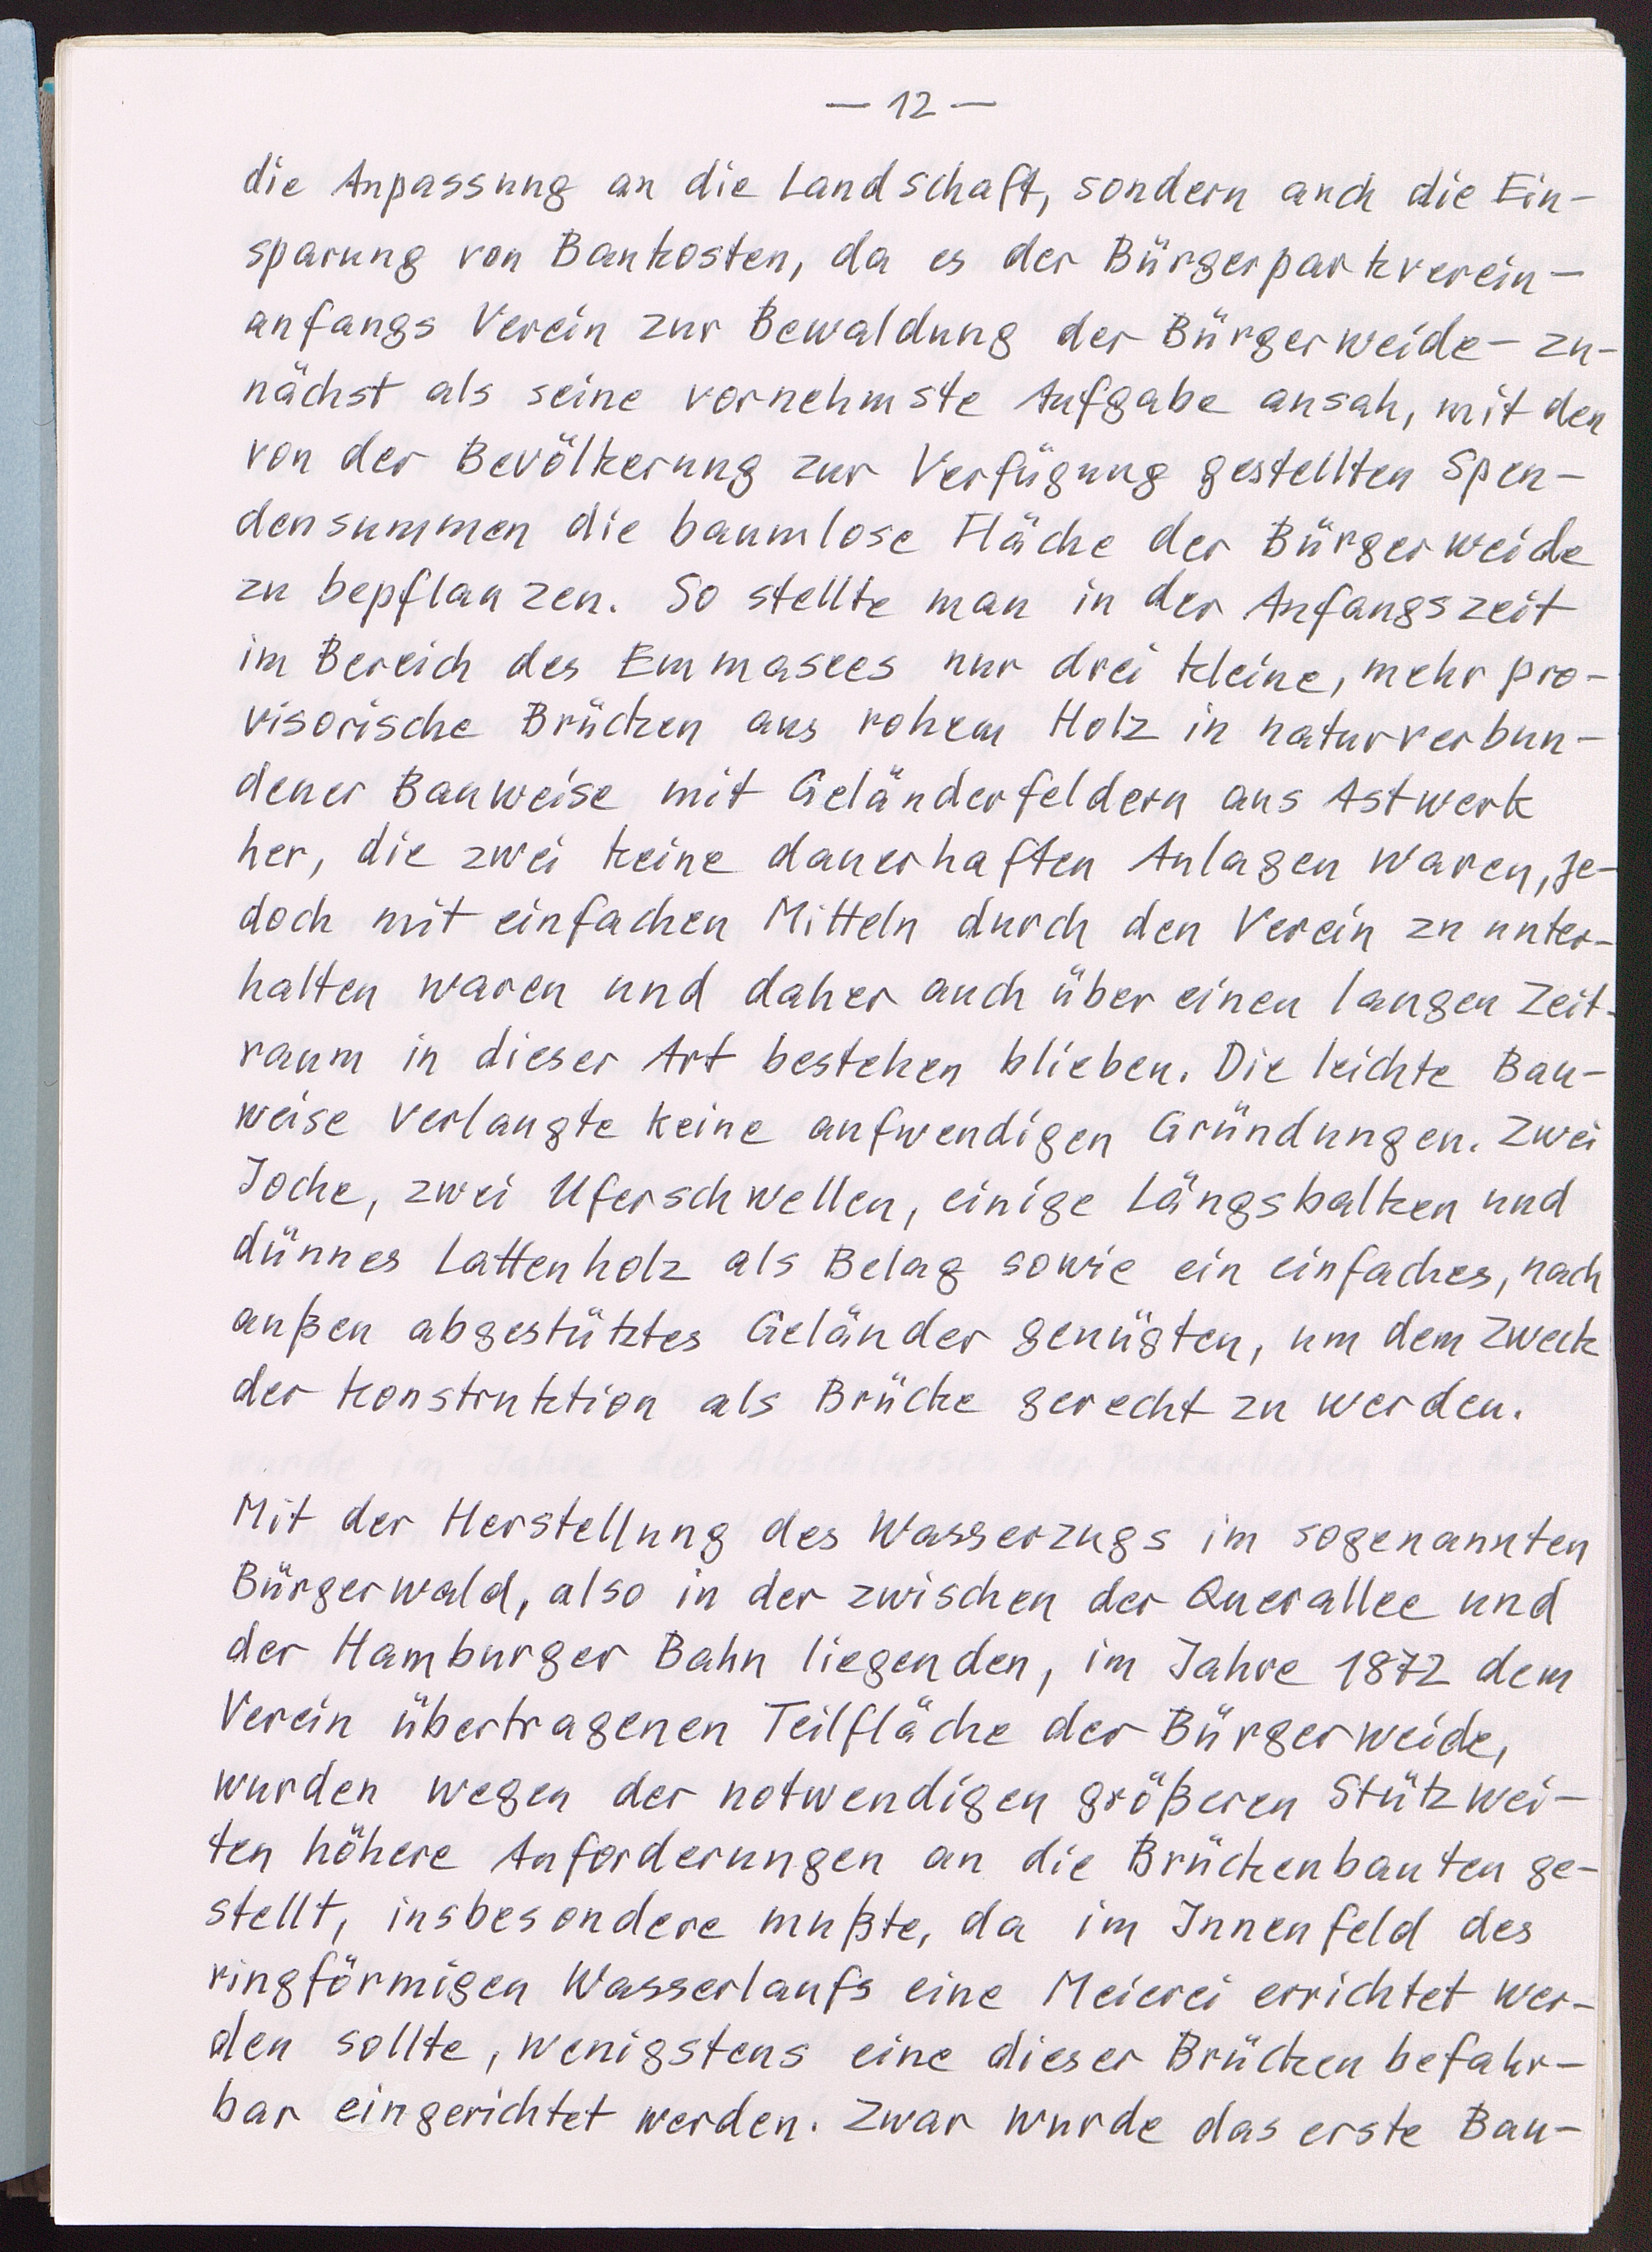 — 12 —
die Anpassung an die Landschaft, sondern auch die Ein-
sparung von Baukosten, da es der Bürgerparkverein —
anfangs Verein zur Bewaldung der Bürgerweide — zu-
nächst als seine vornehmste Aufgabe ansah, mit den
von der Bevölkerung zur Verfügung gestellten Spen-
densummen die baumlose Fläche der Bürgerweide
zu bepflanzen. So stellte man in der Anfangszeit
im Bereich des Emmasees nur drei kleine, mehr pro-
visorische Brücken aus rohem Holz in naturverbun-
dener Bauweise mit Geländerfeldern aus Astwerk
her, die zwei keine dauerhaften Anlagen waren, je-
doch mit einfachen Mitteln durch den Verein zu unter-
halten waren und daher auch über einen langen Zeit-
raum in dieser Art bestehen blieben. Die leichte Bau-
weise verlangte keine aufwendigen Gründungen. Zwei
Joche, zwei Uferschwellen, einige Längsbalken und
dünnes Lattenholz als Belag sowie ein einfaches, nach
außen abgestütztes Geländer genügten, um dem Zweck
der Konstruktion als Brücke gerecht zu werden.
Mit der Herstellung des Wasserzugs im sogenannten
Bürgerwald, also in der zwischen der Querallee und
der Hamburger Bahn liegenden, im Jahre 1872 dem
Verein übertragenen Teilfläche der Bürgerweide,
wurden wegen der notwendigen größeren Stützwei-
ten höhere Anforderungen an die Brückenbauten ge-
stellt, insbesondere mußte, da im Innenfeld des
ringförmigen Wasserlaufs eine Meierei errichtet wer-
den sollte, wenigstens eine dieser Brücken befahr-
bar eingerichtet werden. Zwar wurde das erste Bau-